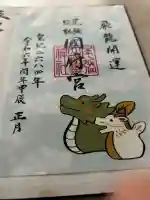 飛龍開運
國府宮
皇紀二六八四年
令和六年閏年甲辰 正月